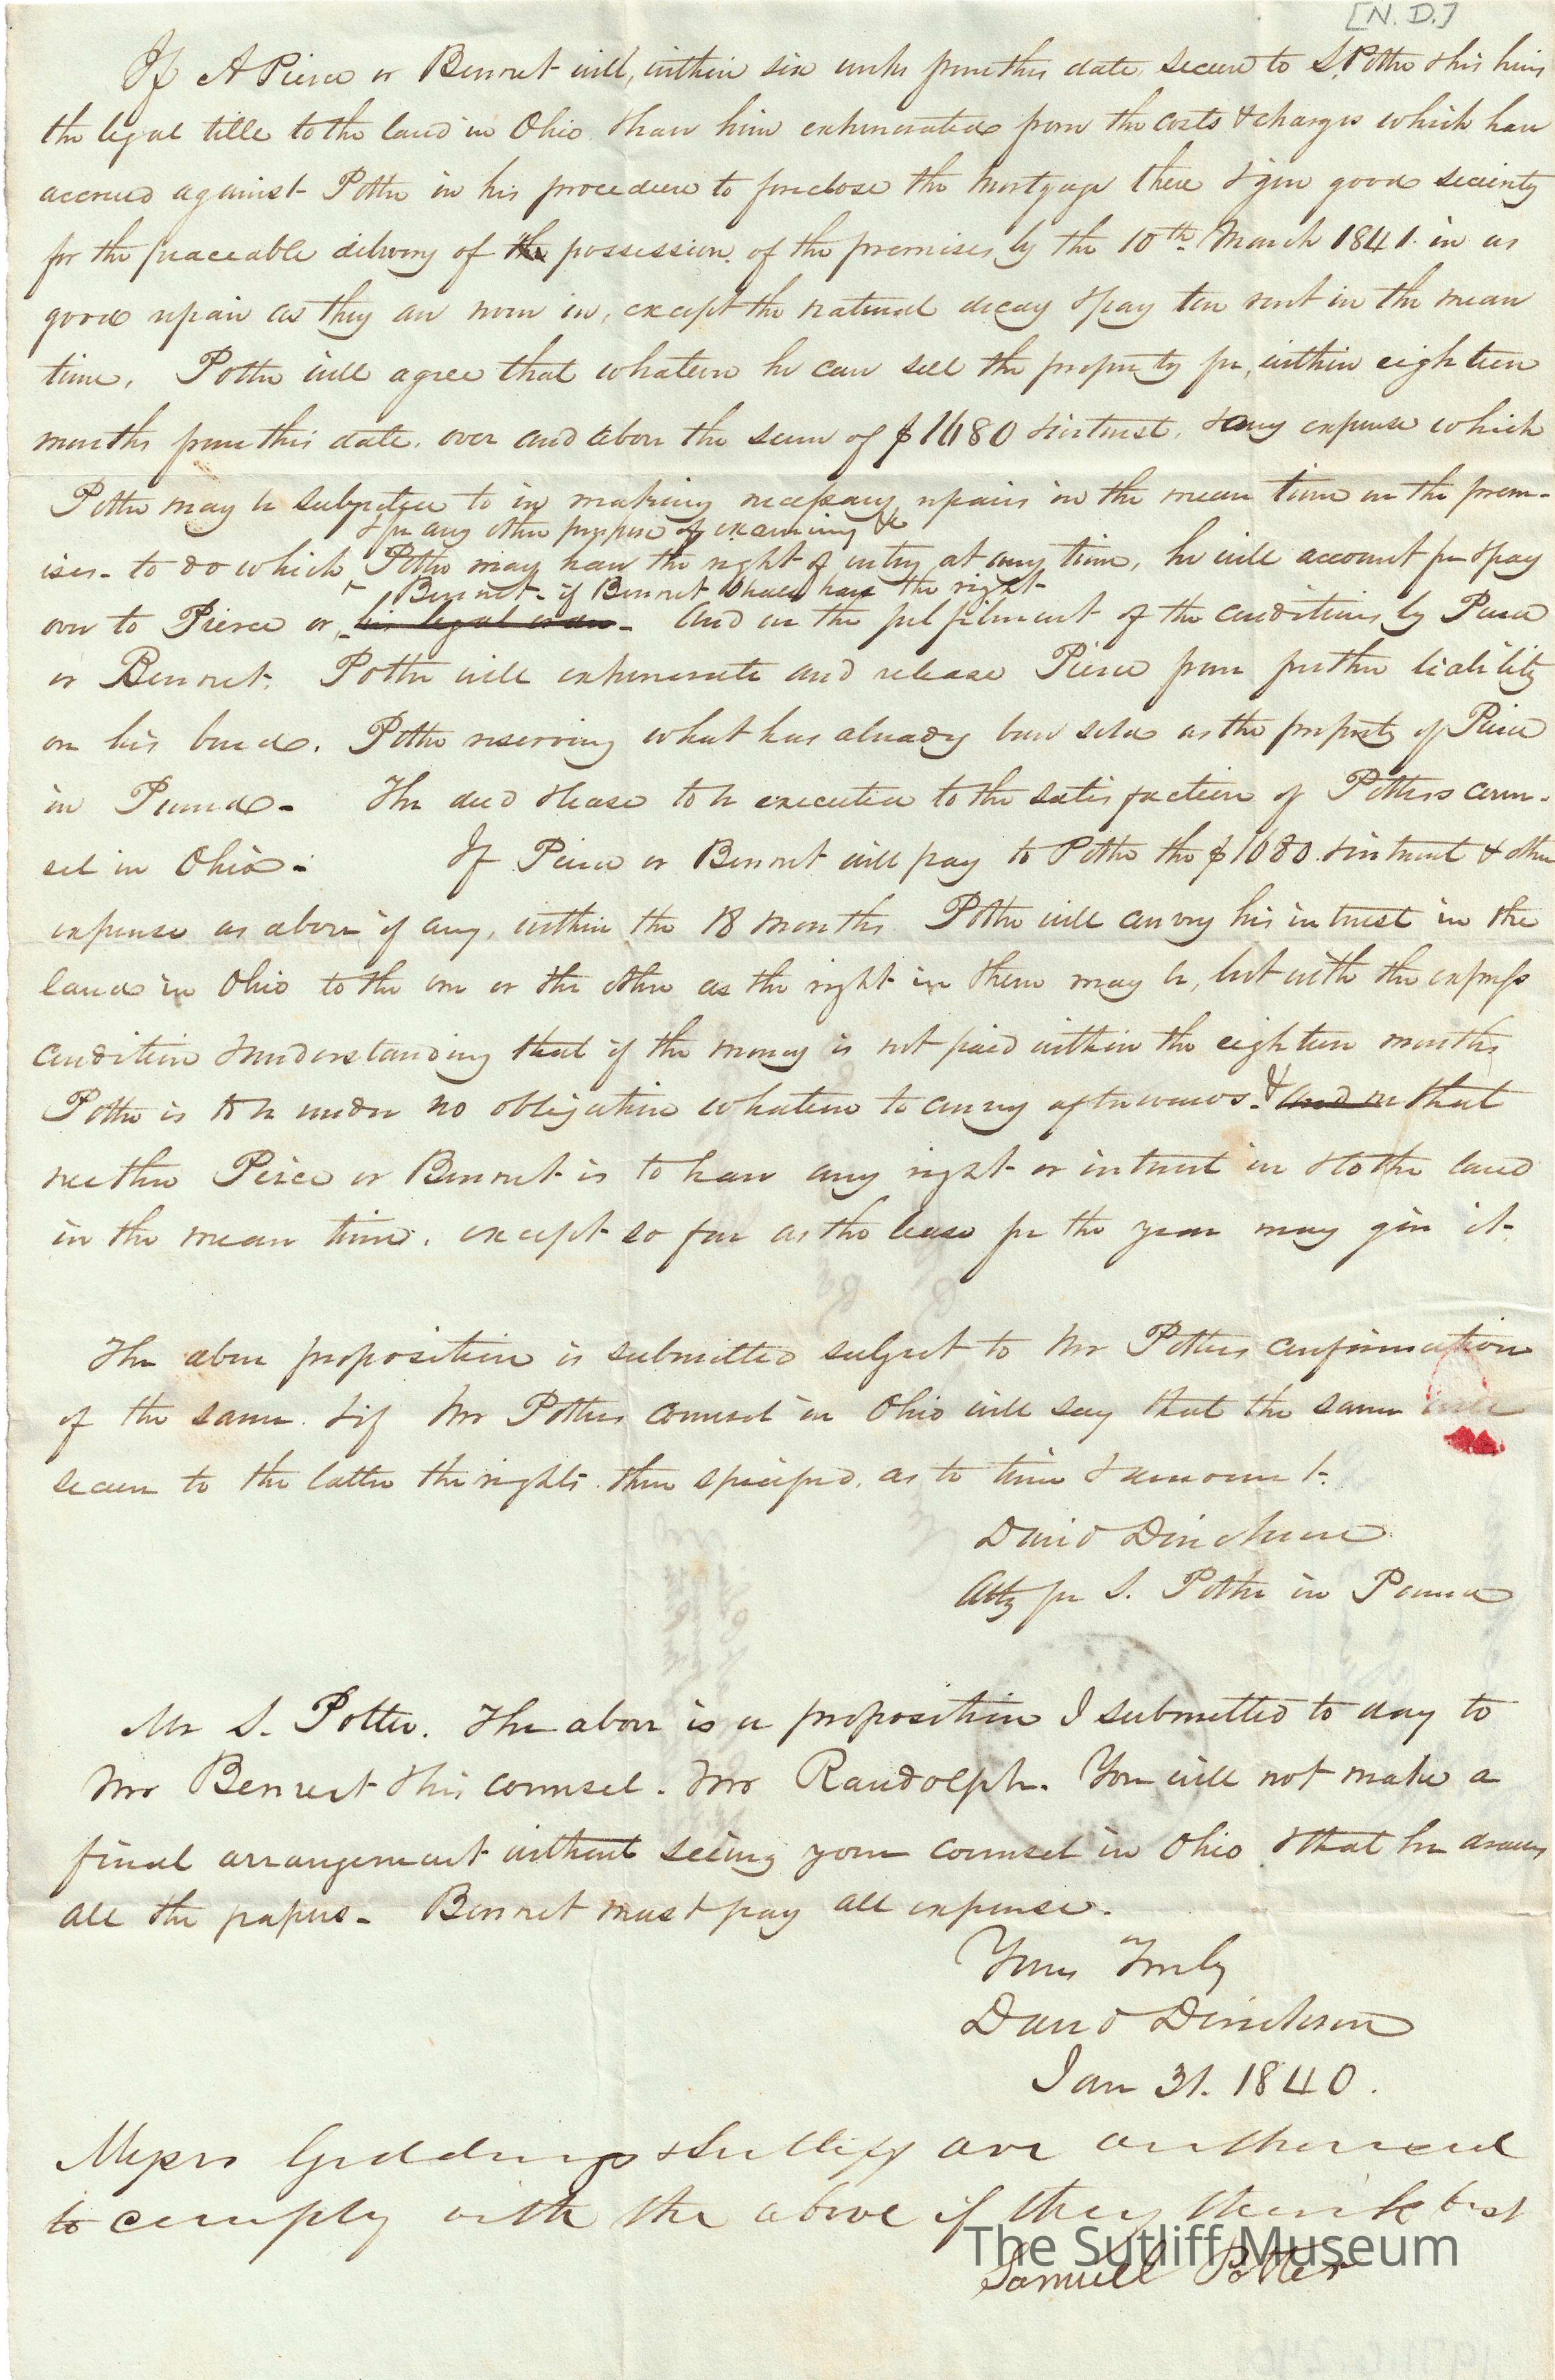 [N.D.]
If A Pierce or Bennet will, within six weeks from this date, secure to S. Potter & his heirs
the legal title to the land in Ohio & have him exhonerated from the costs & charges which have
accrued against Potter in his procedure to foreclose the mortgage there & give good security
for the peaceable delivery of the possession of the premises by the 10th March 1841. in as
good repair as they are now in, except the natural decay & pay ten rent in the mean
time, Potter will agree that whatever he can sell the property for, within eighteen
months from this date, over and above the sum of $1680 & interest, & any expense which
Potter may be subjected to in making necessary repairs in the mean time on the prem-
& for any other purpose of examining &c
ises - to do which Potter may have the right of entry at any time, he will account for & pay
Bennet - if Bennet shall have the right
over to Pierce or his legal - And on the fulfilment of the conditions by Pierce
or Bennet. Potter will exhonerate and release Pierce from further liability
on his bond. Potter reserving what has already been sold as the property of Pierce
in Penna - The deed & lease to be executed to the satisfaction of Potters coun-
sel in Ohio - If Pierce or Bennet will pay to Potter the $1680 & interest & other
expense as above if any, within the 18 months Potter will convey his interest in the
land in Ohio to the one or the other as the right in them may be, but with the express
condition & understanding that if the money is not paid within the eighteen months
Potter is to be under no obligation whatever to convey afterwards - & and that
neither Peirce or Bennet is to have any right or interest in & to the land
in the mean time, except so far as the lease for the year may give it -
The above proposition is submitted subject to Mr Potters confirmation
of the same & if Mr Potters counsel in Ohio will say that the same will
secure to the latter the rights there specified, as to time & amount.
David Dinckson
Atty for S. Potter in Penna
Mr S. Potter. The above is a proposition I submitted to day to
Mr Bennet & his counsel - Mr Randolph. You will not make a
final arrangement without seeing your counsel in Ohio & that he draws
all the papers - Bennet must pay all expense.
Yours Truly
David Dinckson
Jan 31. 1840.
Messrs Giddings & Sutliff are authorised
to comply with the above if they think best
Samuel Potter
The Sutliff Museum